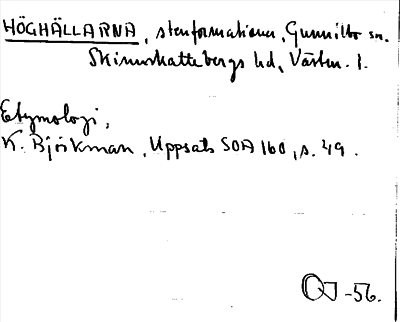 HÖGHÄLLARNA, stenformationer, Gunnilbo sn.
Skinnskattebergs hd, Västm. l.
Etymologi,
K. Björkman, Uppsats SOA 160, s. 49.
-56.